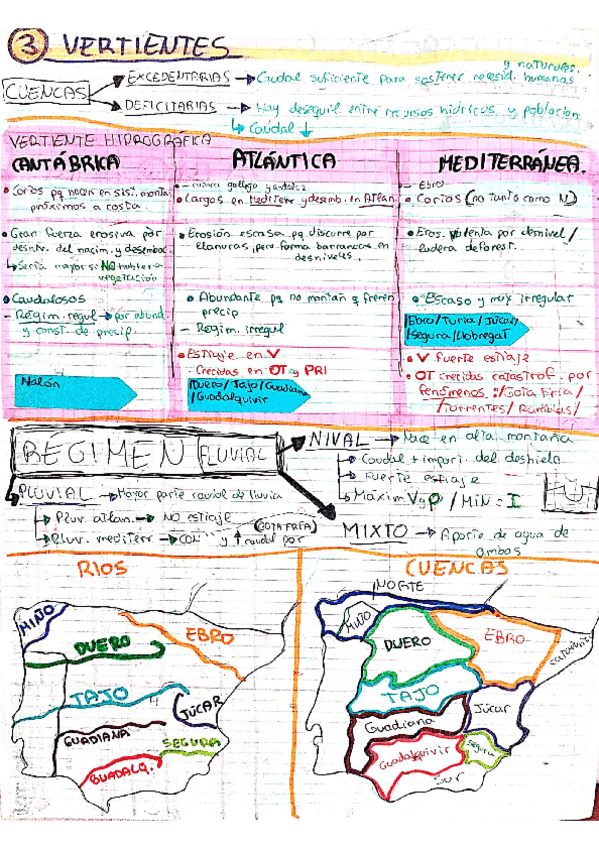 3 VERTIENTES
CUENCAS
EXCEDENTARIAS → Caudal suficiente para sostener necesid. humanas y naturales.
DEFICITARIAS → Hay desequil entre recursos hídricos y poblacion
↳ Caudal ↓
VERTIENTE HIDROGRÁFICA
CANTÁBRICA
• Cortos pq nacen en sist. montañ
próximos a costa
• Gran fuerza erosiva por
desniv. del nacim. y desemboc
↳ Sería mayor si NO hubiera
vegetación
• Caudalosos
- Régim. regul → por abund
y const. de precip.
Nalón
ATLÁNTICA
- cuenca gallega y
• Largos en Mediterr y desemb. en Atlan
• Erosión escasa pq discurre por
llanuras, pero forma barrancos en
desniveles.
• Abundante pq no montañ q frenen
precip
- Regim. irregul
• Estiaje en V
- Crecidas en OT y PRI
Duero / Tajo / Guadiana
/ Guadalquivir
MEDITERRÁNEA.
- Ebro
• Cortos (no tanto como N)
• Eros. violenta por desnivel /
ladera deforest.
• Escaso y muy irregular
Ebro / Turia / Júcar /
/ Segura / Llobregat
• V fuerte estiaje
• OT crecidas catastrof. por
fenómenos :/ Gota Fría /
/ Torrentes / Ramblas /
RÉGIMEN FLUVIAL
NIVAL → Nace en alta montaña
→ Caudal + import. del deshielo
→ Fuerte estiaje
→ Máxim V y P / MIN = I
PLUVIAL → Mayor parte caudal de lluvia
→ Pluv. atlan. → NO estiaje
→ Pluv. mediterr → CON '' y ↑ caudal por (GOTA FRÍA)
MIXTO → Aporte de agua de
ambos
RIOS
MIÑO
DUERO
EBRO
TAJO
JÚCAR
GUADIANA
SEGURA
GUADALQ.
CUENCAS
NORTE
MIÑO
DUERO
EBRO
TAJO
Guadiana
Júcar
Guadalquivir
Segura
Sur